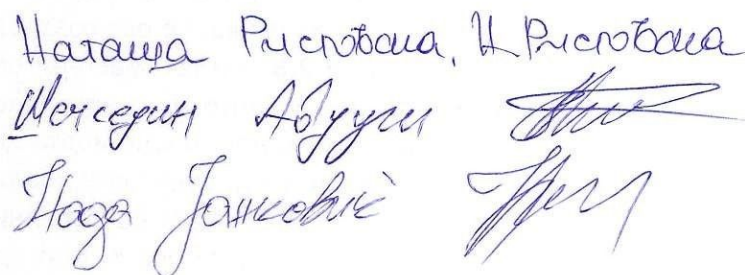 Наташа Ристовска, Н Ристовска
Шемседин Абдули
Нада Јанковиќ